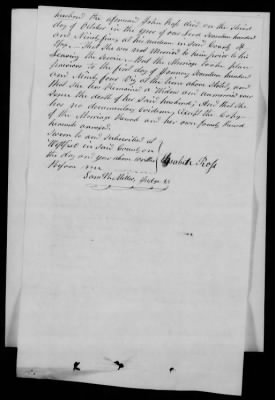 husband the aforesaid John Ross died on the third
day of October in the year of our Lord Eighteen hundred
and Ninety four at his residence in said County of
That She was not Married to him prior to his
leaving the Service, but the Marriage took place
previous to the first day of January Seventeen hundred
and Ninety four Viz at the time above stated, and
that She has Remained a Widow and unmarried ever
Since the death of her Said husband; And that She
has no documentary evidence, except the Copy
of the Marriage Record and her own family Record
hereunto annexed.
Sworn to and subscribed at
Westfield in said County, on
the day and year above written
Before me
Ross
Saml Miller, Judge